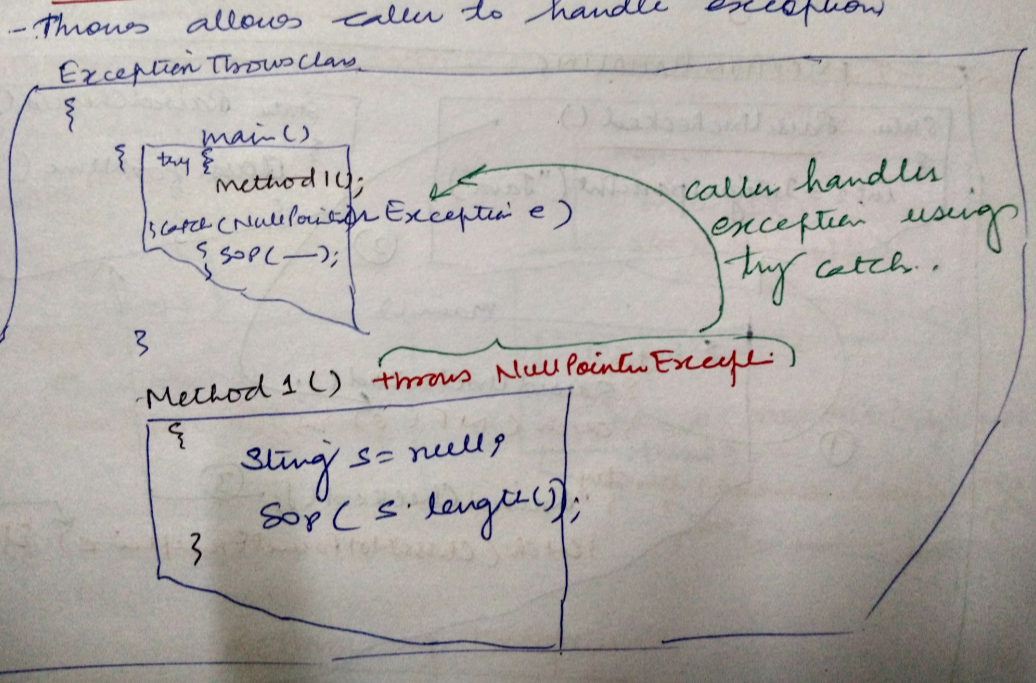 - Throws allows caller to handle exception
Exception Throws Class
{
main()
{ try {
method1();
} catch (NullPointer Exception e)
{ SOP( — );
}
}
caller handles
exception using
try catch.
Method 1 () throws NullPointerExcept.
{
String s = null;
SOP( s.length());
}